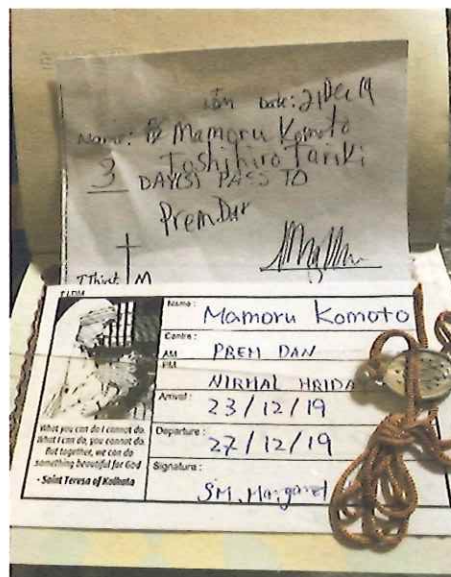 Date: 21 Dec 19
Name: Mamoru Komoto
Toshihiro Tariki
3 DAY(S) PASS TO
Prem Dan
I Thirst M
Name: Mamoru Komoto
Centre:
AM PREM DAN
PM NIRMAL HRIDA
Arrival: 23/12/19
Departure: 27/12/19
Signature: SM. Margaret
What you can do I cannot do.
What I can do, you cannot do.
But together, we can do
something beautiful for God
- Saint Teresa of Kolkata